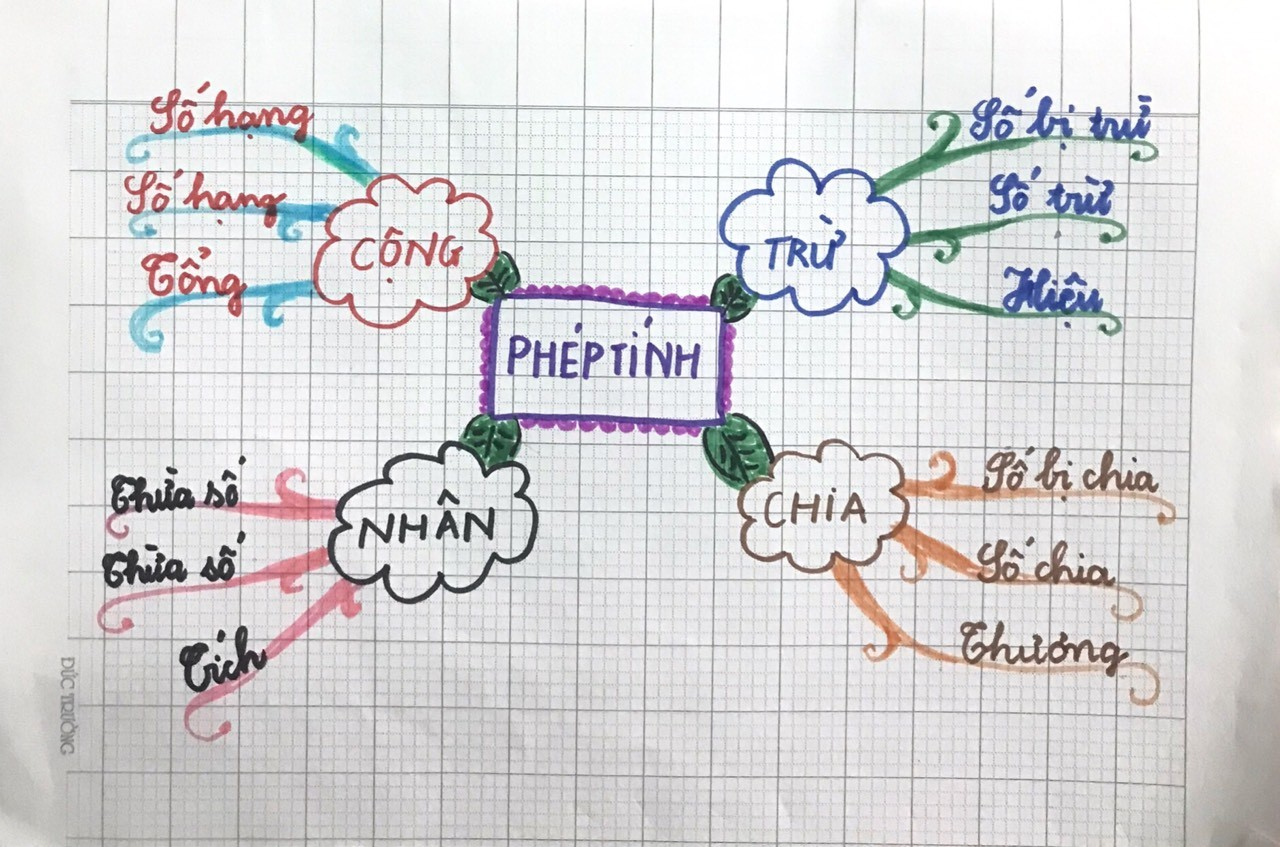 PHÉP TÍNH
CỘNG
Số hạng
Số hạng
Tổng
TRỪ
Số bị trừ
Số trừ
Hiệu
NHÂN
Thừa số
Thừa số
Tích
CHIA
Số bị chia
Số chia
Thương
ĐỨC TRƯỜNG